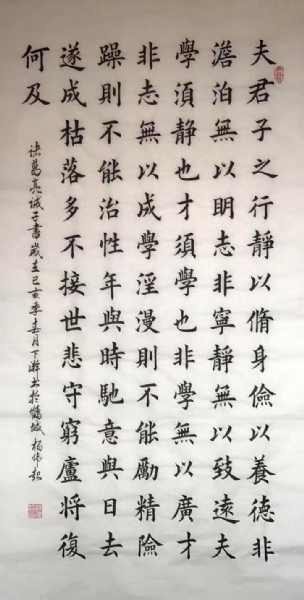 夫君子之行靜以脩身儉以養德非
澹泊無以明志非寧靜無以致遠夫
學須靜也才須學也非學無以廣才
非志無以成學淫漫則不能勵精險
躁則不能治性年與時馳意與日去
遂成枯落多不接世悲守窮廬將復
何及
諸葛亮誡子書歲在己亥季春月下澣書於鶴城楊偉